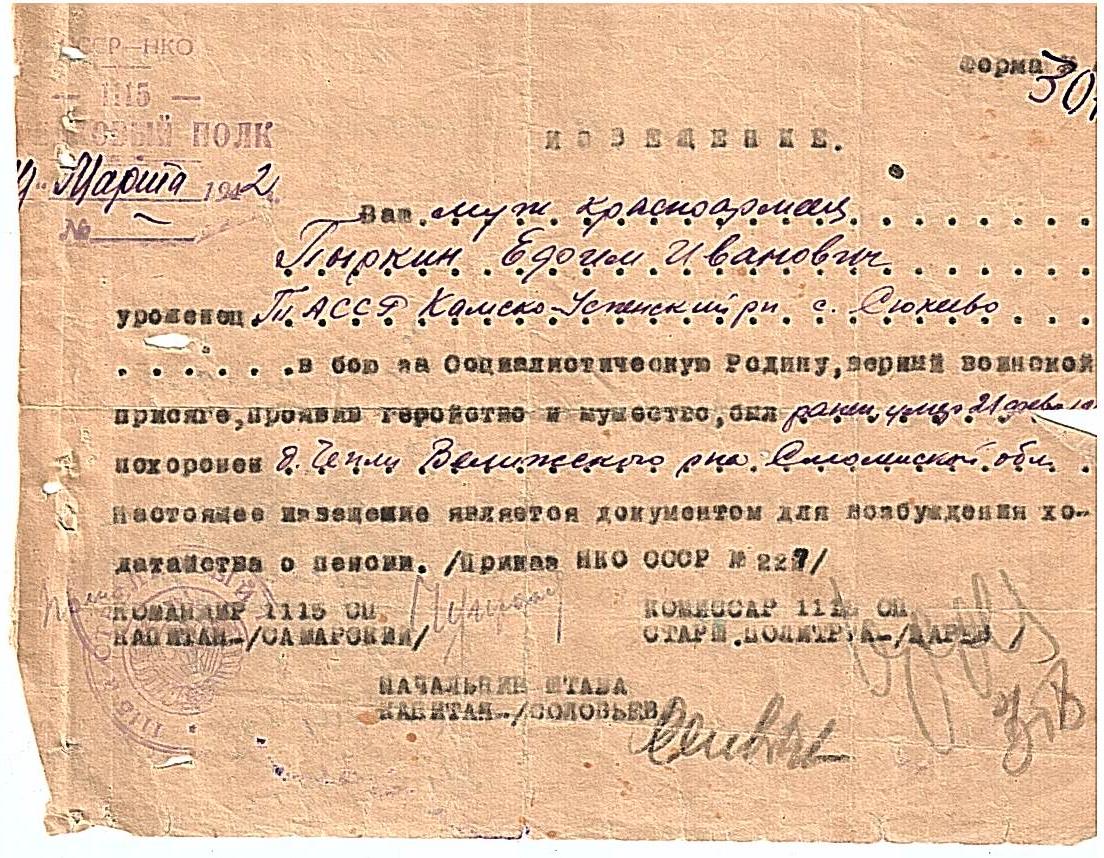 СССР—НКО
— 1115 —
ПОЛК
Марта 1942 г.
№
Форма
ИЗВЕЩЕНИЕ.
Ваш муж красноармеец
Пыркин Ефим Иванович
уроженец ТАССР Камско-Устенский рн с. Сюкеево
в бою за Социалистическую Родину, верный воинской
присяге, проявив геройство и мужество, был ранен, умер 21
похоронен д. Чепли Велижского рна Смоленской обл
Настоящее извещение является документом для возбуждения хо-
датайства о пенсии. /Приказ НКО СССР № 227/
КОМАНДИР 1115 СП
КАПИТАН-/САМАРСКИЙ/
КОМИССАР 1115 СП
СТАРШ.ПОЛИТРУК-/ЦАРЕВ /
НАЧАЛЬНИК ШТАБА
КАПИТАН-/СОЛОВЬЕВ